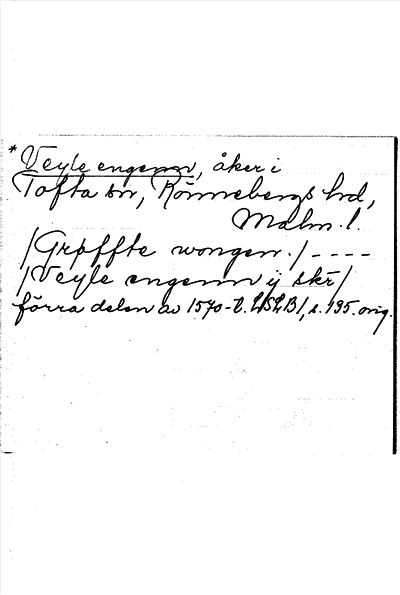 * Veyle engenn, åker i
Tofta sn, Rönnebergs hrd,
Malm. l.
/Grøffte wongen./ ----
/Veyle engenn ij skr/
förra delen av 1570-t. LSLB/, s. 135. orig.